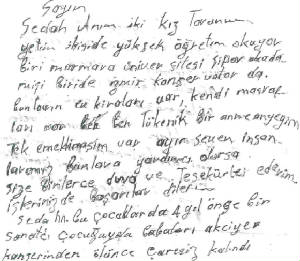 Sayın
Sedat Anım iki kız Torunum
yetim ikiside yüksek öğretim okuyor
biri marmara üniversitesi sipor akada
misi biride izmir konservator da.
bunların ev kiraları var, kendi masraf
ları var ben Tükenik bir anneanneyim
Tek emekli maaşım var ayın seven insan
larımız bunlara yardımcı olursa
size binlerce dua ve Teşekürler ederim
işlerinizde başarılar dilerim
Seda hn. bu çocuklarda 4 yıl önçe bir
sanatcı çocuğuydu babaları akciyer
kanserinden ölünce çaresiz kalındı